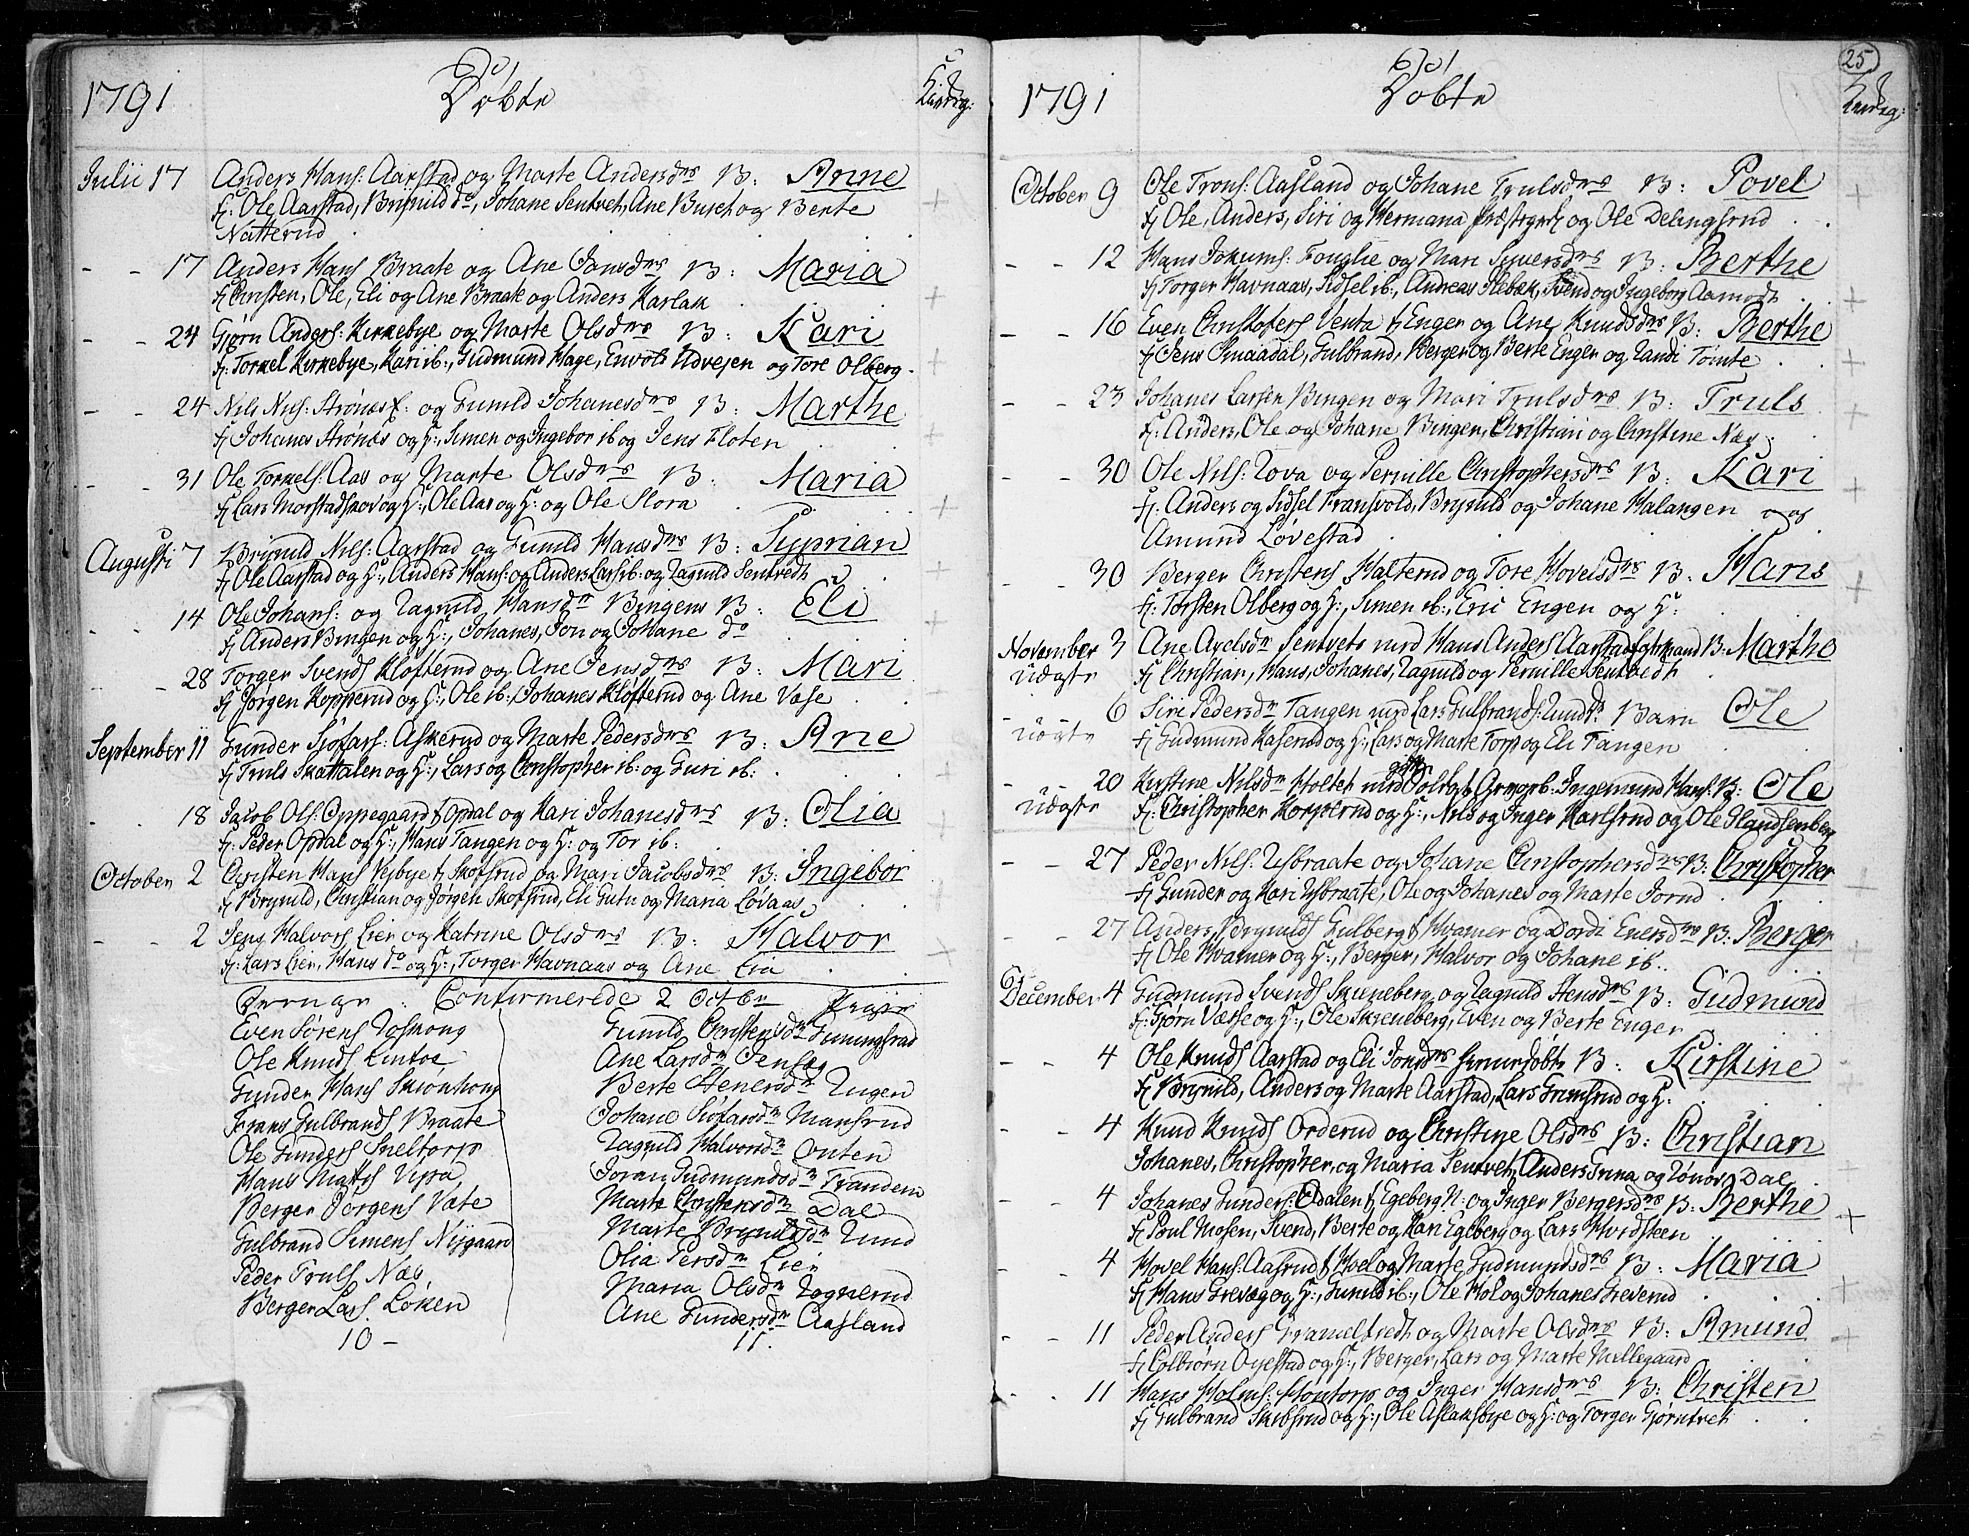 1791
Døbte
Julii 17 Anders Hans: Aarstad og Marte Andersdrs B: Anne
f: Ole Aarstad, Brynild do, Johane Sentvet, Ane Buseh og Berte
Natterud
- - 17 Anders Hans Braate og Ane Jansdrs B: Maria
f Christen, Ole, Eli og Ane Braate og Anders Karlak
- - 24 Gjørn Anders: Kirkebye og Marte Olsdrs B: Kari
f: Torkel Kirkebye, Kari ib:, Gudmund Hage, Envold Udvejen og Tore Olberg
- - 24 Nils Nils: Strønæs f: og Gunild Johanesdrs B: Marthe
f Johanes Strønæs og H:, Simen og Ingebor ib og Jens Floten
- - 31 Ole Torkels: Aas og Marte Olsdrs B: Maria
f Lars Morstadskov og H:, Ole Aas og H: og Ole Flora
Augusti 7 Brynild Nils: Aarstad og Gunild Hansdrs B: Syprian
f Ole Aarstad og H:, Anders Hans: og Anders Lars ib: og Ragnild Sentvedt
- - 14 Ole Johans: og Ragnild Hansdr Bingens B: Eli
f Anders Bingen og H:, Johanes, Jon og Johane do
- - 28 Torger Svends Klofterud og Ane Jensdrs B: Mari
f Jørgen Kopperud og H:, Ole ib:, Johanes Klofterud og Ane Vase
September 11 Gunder Sjøfars: Askerud og Marte Pedersdrs B: Ane
f Truls Skattalen og H:, Lars og Christopher ib: og Guri ib:
- - 18 Jacob Ols: Oppegaard f Opdal og Kari Johanesdrs B: Olia
f: Peder Opdal og H:, Hans Tangen og H: og Tor ib:
October 2 Christen Hans Vesbye f Skofsrud og Mari Jacobsdrs B: Ingebor
f Brynild, Christian og Jørgen Skofsrud, Eli Gutu og Maria Løvaas
- - 2 Jens Halvors Lier og Katrine Olsdrs B: Halvor
f: Lars Lier, Hans do og H:, Torger Havnaas og Ane Lia
Drenge Confirmerede 2 Octbr Piger
Even Sørens Gunild Christensdr
Ole Knuds Lintoe Ane Larsdr
Gunder Hans Berte Stenersdr Engen
Frans Gulbrands Braate Johane Sjøfarsdr Mansrud
Ole Gunders Sneltorp Ragnild Halvorsdr Onten
Hans Mats Visra Joran Gudmundsdr Frandem
Berger Jørgens Vate Marte Christensdr Dal
Gulbrand Simens Nijgaard Marte Brynildsdr Lund
Peder Truls Næs Olia Persdr Lier
Berger Lars Løken Maria Olsdr Rognerud
Ane Gundersdr Aasland
10 - 11.
25
1791
Døbte
October 9 Ole Frons: Aasland og Johane Trulsdrs B: Povel
f Ole, Anders, Siri og Hermana Præstegrd og Ole Delingsrud
- - 12 Hans Jokums: Fouglie og Mari Syversdrs B: Berthe
f Torger Havnaas, Sidsel ib:, Andreas Slebæk, Svend og Ingeborg Aamodt
- - 16 Even Christofers Venta f Enger og Ane Knudsdrs B: Berthe
f Jens Smaadal, Gulbrand, Berger og Berte Enger og Randi Tomte
- - 23 Johanes Larsen Bingen og Mari Trulsdrs B: Truls
f: Anders, Ole og Johane Bingen, Christian og Christine Næs
- - 30 Ole Nils: Tova og Pernille Christophersdrs B: Kari
f: Anders og Sidsel Fransvold, Brynild og Johane Halangen og
Amund Løvestad
- - 30 Berger Christens Halterud og Tore Hovelsdrs B: Haris
f: Torsten Olberg og H:, Simen ib:, Eric Engen og H:
November 3 Ane Axelsdr Sentvets med Hans Anders Aarstad B: Marthe
Uægte f Christian, Hans, Johanes, Ragnild og Pernille Sentvedt
- 6 Siri Pedersdr Tangen med Lars Gulbrands: Lund Barn Ole
Uægte f Gudmund Kaserud og H:, Lars og Marte Torp og Eli Tangen
- - 20 Kirstine Nilsdr Holtet med Ingemund Hans: B: Ole
Uægte f: Christopher Korpeerud og H:, Nils og Inger Karlsrud og Ole
- - 27 Peder Nils: Ysbraate og Johane Christophersdrs B: Christopher
f Gunder og Kari Ysbraate, Ole og Johanes og Marte Jorud
- - 27 Anders Brynilds Gulberg f Hvamer og Dordi Eversdrs B: Berger
f Ole Hvamer og H:, Berger, Halvor og Johane ib.
December 4 Gudmund Svends Skieneberg og Ragnild Stensdrs B: Gudmund
f: Gjørn Væsse og H:, Ole Skjeneberg, Even og Berte Enger
- - 4 Ole Knuds Aarstad og Eli Jonsdrs hiemedøbte B: Kirstine
f Brynild, Anders og Marte Aarstad, Lars Grimsrud og H:
- - 4 Knud Knuds Orderud og Christine Olsdrs B: Christian
Johanes, Christopher og Maria Sentvet, Anders og Dal
- - 4 Johanes Gunders: Odalen f Egeberg N: og Inger Bergersdrs B: Berthe
f Poul Mosen, Svend, Berte og Kari Egeberg og Lars Hvidsteen
- - 4 Hovel Hans: Aasrud f Hoel og Marte Gudmundsdrs B: Maria
f Hans Grevæg og H:, Gunild ib:, Ole Hol og Johanes Greverud
- - 11 Peder Anders Grameltvedt og Marte Olsdrs B: Amund
f Colbiørn Oyestad og H:, Berger, Lars og Marte Mellegaard
- - 11 Hans Holms: Montorp og Inger Hansdrs B: Christen
f Gulbrand Skibsrud og H:, Ole Aslaksbye og H: og Torger Gjørntvet